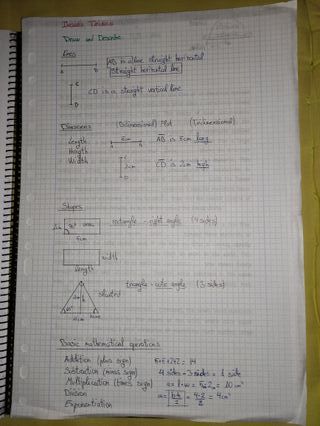 Draw and Describe
Lines
A B AB is a line straight horizontal
Straight horizontal line
C
CD is a straight vertical line
D
Dimensions (Bidimensional) Flat (Tridimensional)
Length 5cm AB is 5cm long
Height
Width 2cm CD is 2cm high
Shapes
2cm 90° area rectangle - right angle (4 sides)
5cm
width
length
triangle - acute angle (3 sides)
Basic mathematical operations
Addition (plus sign) 5+5+2+2 = 14
Subtraction (minus sign) 4 sides - 3 sides = 1 side
Multiplication (times sign) a = l·w = 5·2 = 10 cm²
Division a = b·h/2 = 4·2/2 = 4cm²
Exponentiation